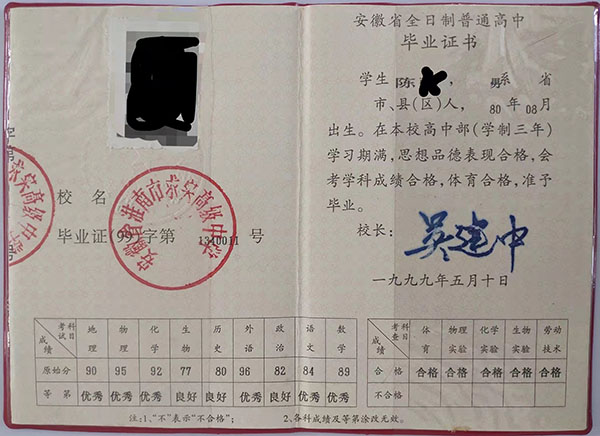 校 名
安徽省淮南市 高级中学
毕业证(99)字第 1310011 号
考试科目 成绩 地理 物理 化学 生物 历史 外语 政治 语文 数学
原始分 90 95 92 77 80 96 82 84 89
等 第 优秀 优秀 优秀 良好 良好 优秀 良好 优秀 优秀
注:1、“不”表示“不合格”; 2、各科成绩及等第涂改无效。
安徽省全日制普通高中
毕业证书
学生 陈 , 男 系 省
市、县(区)人, 80 年 08 月
出生。在本校高中部(学制三年)
学习期满,思想品德表现合格,会
考学科成绩合格,体育合格,准予
毕业。
校长: 吴建中
一九九九年五月十日
考查科目 成绩 体育 物理实验 化学实验 生物实验 劳动技术
合 格 合格 合格 合格 合格 合格
不合格